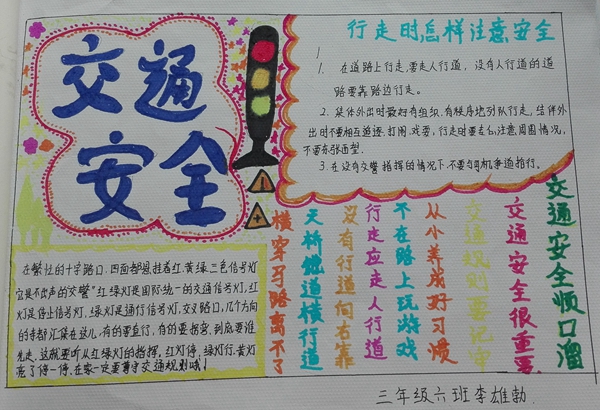 交通
安全
行走时怎样注意安全
1.在道路上行走,要走人行道,没有人行道的道
路要靠路边行走。
2.集体外出时最好有组织.有秩序地列队行走,结伴外
出时不要相互追逐.打闹.戏耍,行走时要专心注意周围情况,
不要东张西望.
3.在没有交警指挥的情况下不要与机动车争道抢行.
交通安全顺口溜
交通安全很重要
交通规则要记牢
从小养成好习惯
不在路上玩游戏
行走应走人行道
没有行道向右靠
天桥地道横行道
横穿马路离不了
在繁忙的十字路口.四面都悬挂着红.黄.绿.三色信号灯
它是不出声的"交警"红绿灯是国际统一的交通信号灯,红
灯是停止信号,绿灯是通行信号灯,交叉路口,几个方向
的车都汇集在这儿,有的要直行,有的要拐弯,到底要谁
先走,这就要听从红绿灯的指挥,红灯停,绿灯行.黄灯
亮了停一停,
三年级六班李雄勃